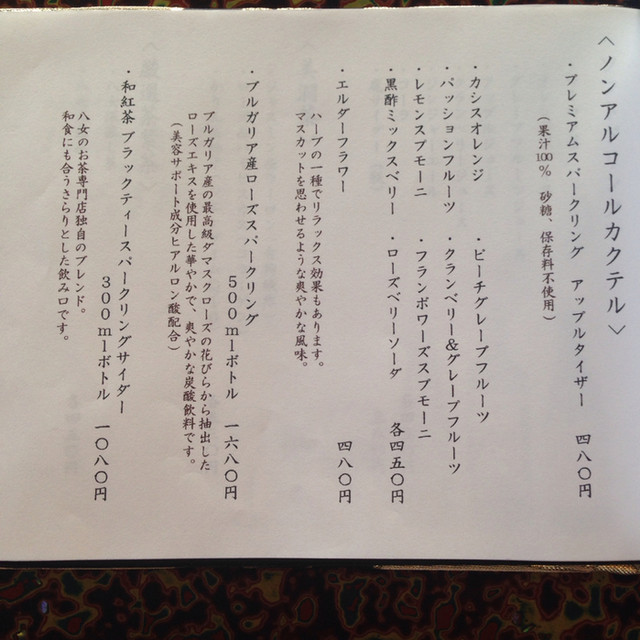 〈ノンアルコールカクテル〉
・プレミアムスパークリング アップルタイザー 四八〇円
(果汁100% 砂糖、保存料不使用)
・カシスオレンジ ・ピーチグレープフルーツ
・パッションフルーツ ・クランベリー&グレープフルーツ
・レモンスプモーニ ・フランボワーズスプモーニ
・黒酢ミックスベリー ・ローズベリーソーダ 各四五〇円
・エルダーフラワー 四八〇円
ハーブの一種でリラックス効果もあります。
マスカットを思わせるような爽やかな風味。
・ブルガリア産ローズスパークリング
500mlボトル 一六八〇円
ブルガリア産の最高級ダマスクローズの花びらから抽出した
ローズエキスを使用した華やかで、爽やかな炭酸飲料です。
(美容サポート成分ヒアルロン酸配合)
・和紅茶 ブラックティースパークリングサイダー
300mlボトル 一〇八〇円
八女のお茶専門店独自のブレンド。
和食にも合うさらりとした飲み口です。